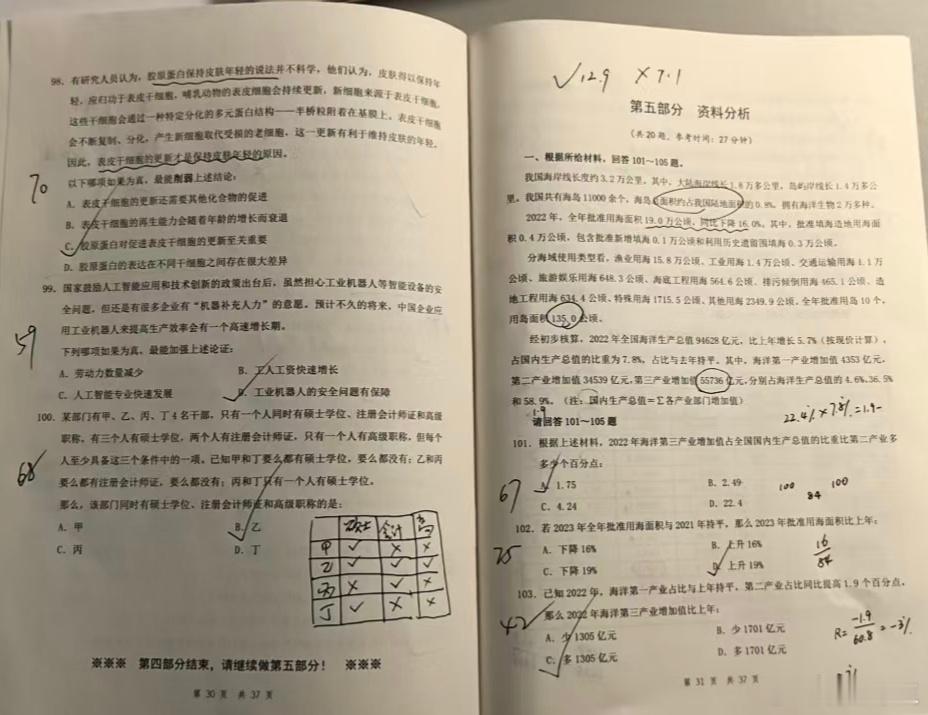 98. 有研究人员认为，胶原蛋白保持皮肤年轻的说法并不科学，他们认为，皮肤得以保持年
轻，应归功于表皮干细胞，哺乳动物的表皮细胞会持续更新，新细胞来源于表皮干细胞，
这些干细胞会通过一种特定分化的多元蛋白结构——半桥粒附着在基膜上。表皮干细胞
会不断复制、分化，产生新细胞取代受损的老细胞，这一更新有利于维持皮肤的年轻。
因此，表皮干细胞的更新才是保持皮肤年轻的原因。
70
以下哪项如果为真，最能削弱上述结论：
A. 表皮干细胞的更新还需要其他化合物的促进
B. 表皮干细胞的再生能力会随着年龄的增长而衰退
C. 胶原蛋白对促进表皮干细胞的更新至关重要
D. 胶原蛋白的表达在不同干细胞之间存在很大差异
99. 国家鼓励人工智能应用和技术创新的政策出台后，虽然担心工业机器人等智能设备的安
全问题，但还是有很多企业有“机器补充人力”的意愿。预计不久的将来，中国企业应
用工业机器人来提高生产效率会有一个高速增长期。
59
下列哪项如果为真，最能加强上述论证：
A. 劳动力数量减少
B. 工人工资快速增长
C. 人工智能专业快速发展
D. 工业机器人的安全问题有保障
100. 某部门有甲、乙、丙、丁 4 名干部，只有一个人同时有硕士学位、注册会计师证和高级
职称。有三个人有硕士学位，两个人有注册会计师证，只有一个人有高级职称，但每个
人至少具备这三个条件中的一项。已知甲和丁要么都有硕士学位，要么都没有；乙和丙
要么都有注册会计师证，要么都没有；丙和丁只有一个人有硕士学位。
68
那么，该部门同时有硕士学位、注册会计师证和高级职称的是：
A. 甲
B. 乙
C. 丙
D. 丁
硕士 会计 高
甲 ✓ × ×
乙 ✓ ✓ ✓
丙 × ✓ ×
丁 ✓ × ×
※※※ 第四部分结束，请继续做第五部分！ ※※※
第 30 页 共 37 页
✓12.9 ×7.1
第五部分 资料分析
（共 20 题，参考时间：27 分钟）
一、根据所给材料，回答 101～105 题。
我国海岸线长度约 3.2 万公里，其中，大陆海岸线长 1.8 万多公里，岛屿岸线长 1.4 万多公
里。我国共有海岛 11000 余个，海岛总面积约占我国陆地面积的 0.8%，拥有海洋生物 2 万多种。
2022 年，全年批准用海面积 19.0 万公顷，同比下降 16.0%。其中，批准填海造地用海面
积 0.4 万公顷，包含批准新增填海 0.1 万公顷和利用历史遗留围填海 0.3 万公顷。
分海域使用类型看，渔业用海 15.8 万公顷、工业用海 1.4 万公顷、交通运输用海 1.1 万
公顷、旅游娱乐用海 648.3 公顷、海底工程用海 564.6 公顷、排污倾倒用海 465.1 公顷、造
地工程用海 634.4 公顷、特殊用海 1715.5 公顷、其他用海 2349.9 公顷。全年批准用岛 10 个，
用岛面积 135.0 公顷。
经初步核算，2022 年全国海洋生产总值 94628 亿元，比上年增长 5.7%（按现价计算），
占国内生产总值的比重为 7.8%，占比与去年持平。其中，海洋第一产业增加值 4353 亿元，
第二产业增加值 34539 亿元，第三产业增加值 55736 亿元，分别占海洋生产总值的 4.6%、36.5%
和 58.9%。（注：国内生产总值=Σ各产业部门增加值）
1.9
22.4% × 7.8% = 1.9-
请回答 101～105 题
101. 根据上述材料，2022 年海洋第三产业增加值占全国国内生产总值的比重比第二产业多
多少个百分点：
67
A. 1.75
B. 2.49
C. 4.24
D. 22.4
100 84 100
102. 若 2023 年全年批准用海面积与 2021 年持平，那么 2023 年批准用海面积比上年：
75
A. 下降 16%
B. 上升 16%
C. 下降 19%
D. 上升 19%
16
84
103. 已知 2022 年，海洋第一产业占比与上年持平，第二产业占比同比提高 1.9 个百分点，
42
那么 2022 年海洋第三产业增加值比上年：
A. 少 1305 亿元
B. 少 1701 亿元
C. 多 1305 亿元
D. 多 1701 亿元
R= -1.9/60.8 = -3%
第 31 页 共 37 页